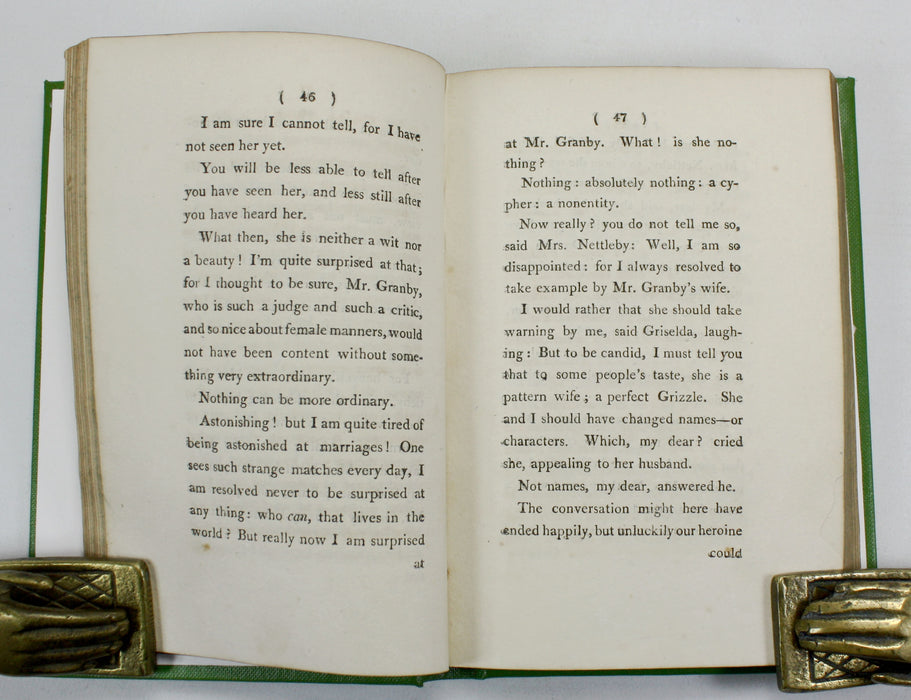 ( 46 )
I am sure I cannot tell, for I have
not seen her yet.
You will be less able to tell after
you have seen her, and less still after
you have heard her.
What then, she is neither a wit nor
a beauty! I'm quite surprised at that;
for I thought to be sure, Mr. Granby,
who is such a judge and such a critic,
and so nice about female manners, would
not have been content without some-
thing very extraordinary.
Nothing can be more ordinary.
Astonishing! but I am quite tired of
being astonished at marriages! One
sees such strange matches every day, I
am resolved never to be surprised at
any thing: who can, that lives in the
world? But really now I am surprised
at
( 47 )
at Mr. Granby. What! is she no-
thing?
Nothing: absolutely nothing: a cy-
pher: a nonentity.
Now really? you do not tell me so,
said Mrs. Nettleby: Well, I am so
disappointed: for I always resolved to
take example by Mr. Granby's wife.
I would rather that she should take
warning by me, said Griselda, laugh-
ing: But to be candid, I must tell you
that to some people's taste, she is a
pattern wife; a perfect Grizzle. She
and I should have changed names—or
characters. Which, my dear? cried
she, appealing to her husband.
Not names, my dear, answered he.
The conversation might here have
ended happily, but unluckily our heroine
could